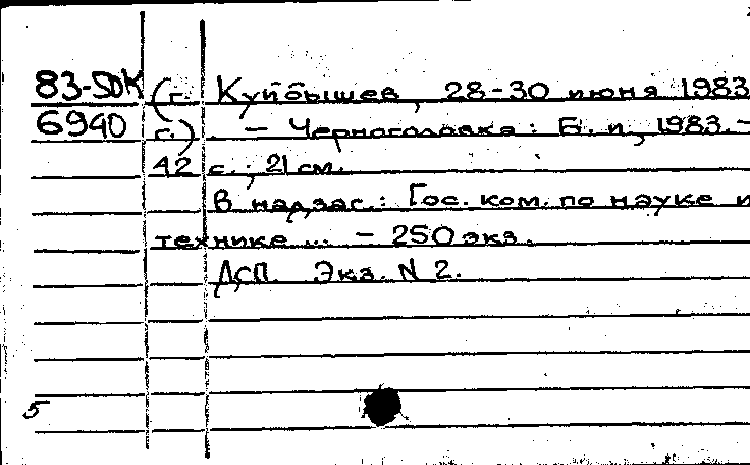 83-5DK (г. Куйбышев, 28-30 июня 1983
6940 г.). - Черноголовка: Б. и., 1983.-
42 с.; 21 см.
В надзас.: Гос. ком. по науке и
технике ... - 250 экз.
ДСП. Экз. N 2.
5